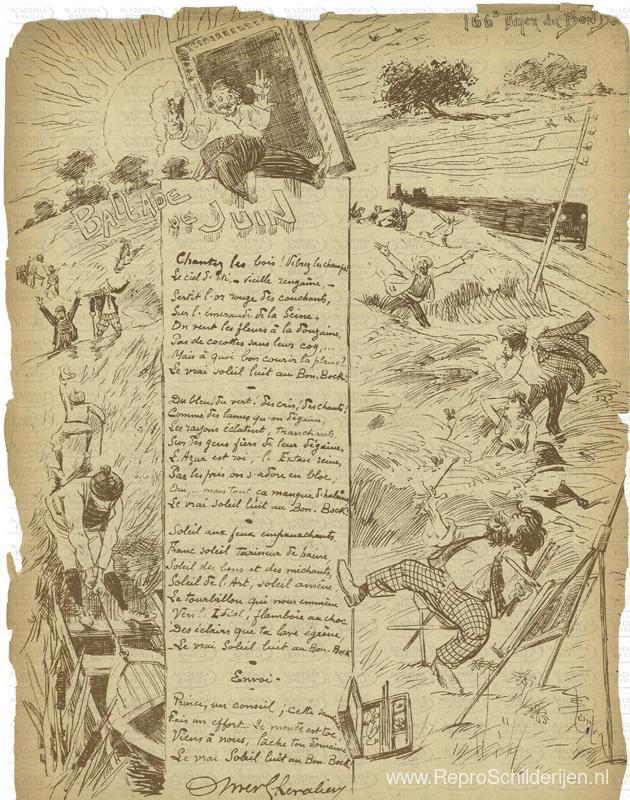 166e Diner du Bon Bo
BALLADE
DE JUIN
Chantez les bois! Vibrez les champs!
Le ciel d'été, - vieille rengaine, -
Sertit l'or rouge des couchants,
Sur l'émeraude de la Seine.
On vent les fleurs à la douzaine,
Pas de cocottes sans leur coq...
Mais à quoi bon courir la plaine?
Le vrai soleil luit au Bon-Bock.
Du bleu, du vert! des cris, des chants!
Comme des lames qu'on dégaine,
Les rayons éclatent, tranchants,
Sur des gens fiers de leur dégaine.
L'Azur est roi, l'Extase reine,
Par les prés on s'adore en bloc,
Oui,... mais tout ça manque d'haleine
Le vrai soleil luit au Bon-Bock!
Soleil aux feux empanachants,
Franc soleil tarisseur de haine,
Soleil des bons et des méchants,
Soleil de l'Art, soleil amène
Le tourbillon qui nous emmène
Vers l'Idéal, flamboie au choc
Des éclairs que ta lave égrène,
Le vrai Soleil luit au Bon-Bock
Envoi-
Prince, un conseil; cette
Fais un effort.. Le monde est toc
Viens à nous, lâche ton domaine
Le vrai Soleil luit au Bon-Bock!
Chevalier
www.ReproSchilderijen.nl